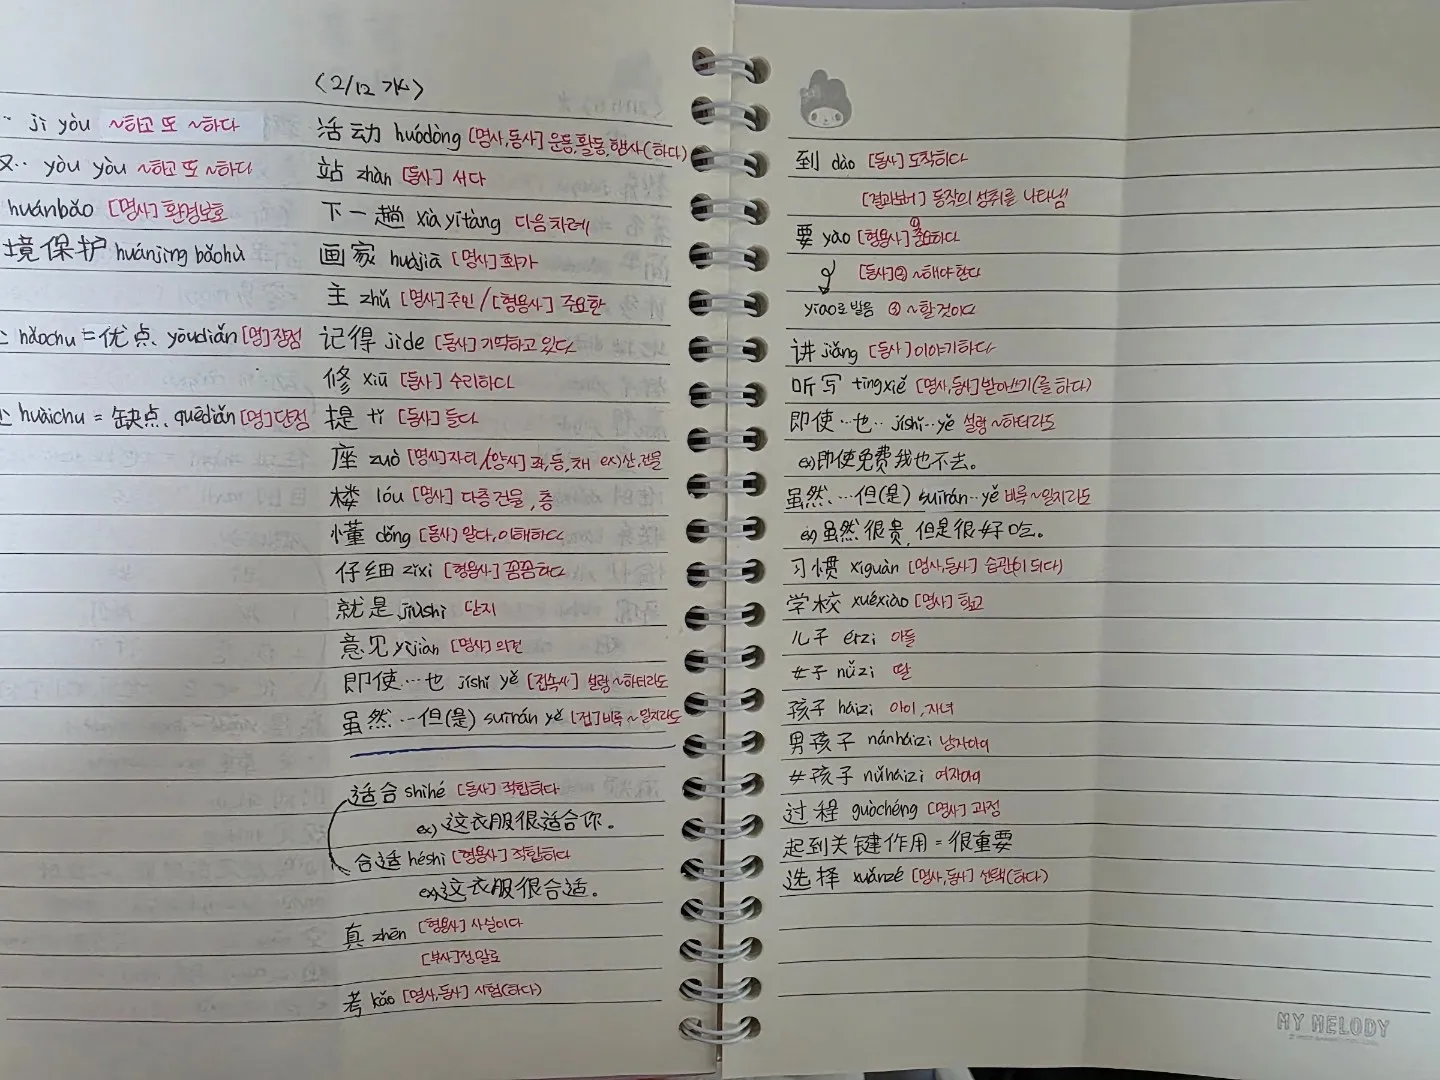 ·· jì yòu ~하고 또 ~하다
又·· yòu yòu ~하고 또 ~하다
huánbǎo [명사] 환경보호
境保护 huánjìng bǎohù
hǎochu = 优点、yōudiǎn [명] 장점
huàichu = 缺点、quēdiǎn [명] 단점
<2/12 水>
活动 huódòng [명사,동사] 운동,활동,행사(하다)
站 zhàn [동사] 서다
下一趟 xià yítàng 다음 차례
画家 huàjiā [명사] 화가
主 zhǔ [명사] 주인 / [형용사] 주요한
记得 jìde [동사] 기억하고 있다
修 xiū [동사] 수리하다
提 tí [동사] 들다
座 zuò [명사] 자리 / [양사] 좌, 동, 채 ex) 산, 건물
楼 lóu [명사] 다층건물, 층
懂 dǒng [동사] 알다, 이해하다
仔细 zǐxì [형용사] 꼼꼼하다
就是 jiùshì 단지
意见 yìjiàn [명사] 의견
即使···也 jíshǐ yě [접속사] 설령 ~하더라도
虽然···但(是) suīrán yě [접] 비록 ~일지라도
适合 shìhé [동사] 적합하다
ex) 这衣服很适合你。
合适 héshì [형용사] 적합하다
ex) 这衣服很合适。
真 zhēn [형용사] 사실이다
[부사] 정말로
考 kǎo [명사,동사] 시험(하다)
到 dào [동사] 도착하다
[결과보어] 동작의 성취를 나타냄
要 yào [형용사] ① 중요하다
[동사] ② ~해야 한다
yiāo로 발음 ③ ~할 것이다
讲 jiǎng [동사] 이야기하다
听写 tīngxiě [명사,동사] 받아쓰기(를 하다)
即使··也·· jíshǐ··yě 설령 ~하더라도
ex) 即使免费我也不去。
虽然、···但(是) suīrán··yě 비록 ~일지라도
ex) 虽然很贵, 但是很好吃。
习惯 xíguàn [명사,동사] 습관(이 되다)
学校 xuéxiào [명사] 학교
儿子 érzi 아들
女子 nǚzi 딸
孩子 háizi 아이, 자녀
男孩子 nánháizi 남자아이
女孩子 nǚháizi 여자아이
过程 guòchéng [명사] 과정
起到关键作用 = 很重要
选择 xuǎnzé [명사,동사] 선택(하다)
MY MELODY